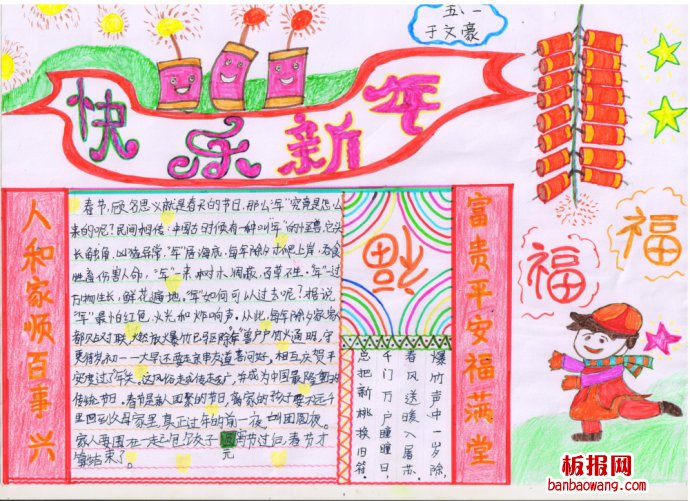 五、一
于文豪
快乐新年
人和家顺百事兴
春节,顾名思义就是春天的节日,那么"年"究竟是怎么
来的呢?民间相传:中国古时候有一种叫"年"的怪兽,它头
长触角,凶猛异常,"年"居海底,每年除夕才爬上岸,吞食
牲畜伤害人命,"年"一来,树木凋散,百草不生。"年"一过
万物生长,鲜花遍地。"年"如何可以过去呢?据说
"年"最怕红色、火光和炸响声。从此,每年除夕家家
都贴对联、燃放爆竹,户户火通明,守
更待岁初一一大早还要走亲串友道喜问好,相互庆贺平
安度过了年关。
传统节日。春节是亲人团聚的节日,离家的孩子要不远千
里回到父母家里,真正过年的前一夜
家人要围在一
宵节过后,春节才
元
算结束了。
福
爆竹声中一岁除,
春风送暖入屠苏。
千门万户曈曈日,
总把新桃换旧符。
富贵平安福满堂
福
福
板报网
banbaowang.com